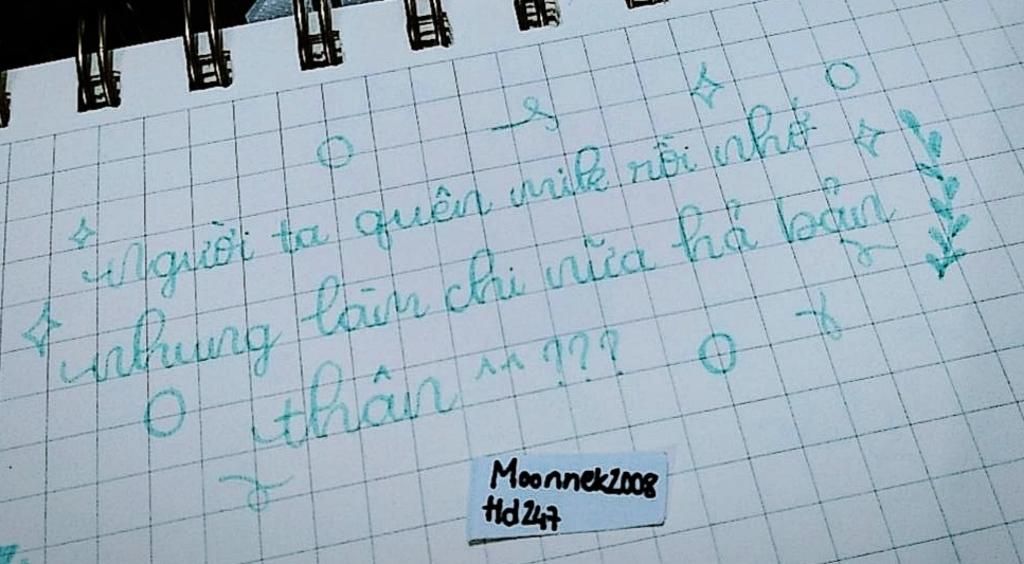 Người ta quên mik rồi nhớ
nhung làm chi nữa hả bản
thân ^^ ???
Moonnek2008
Hd247